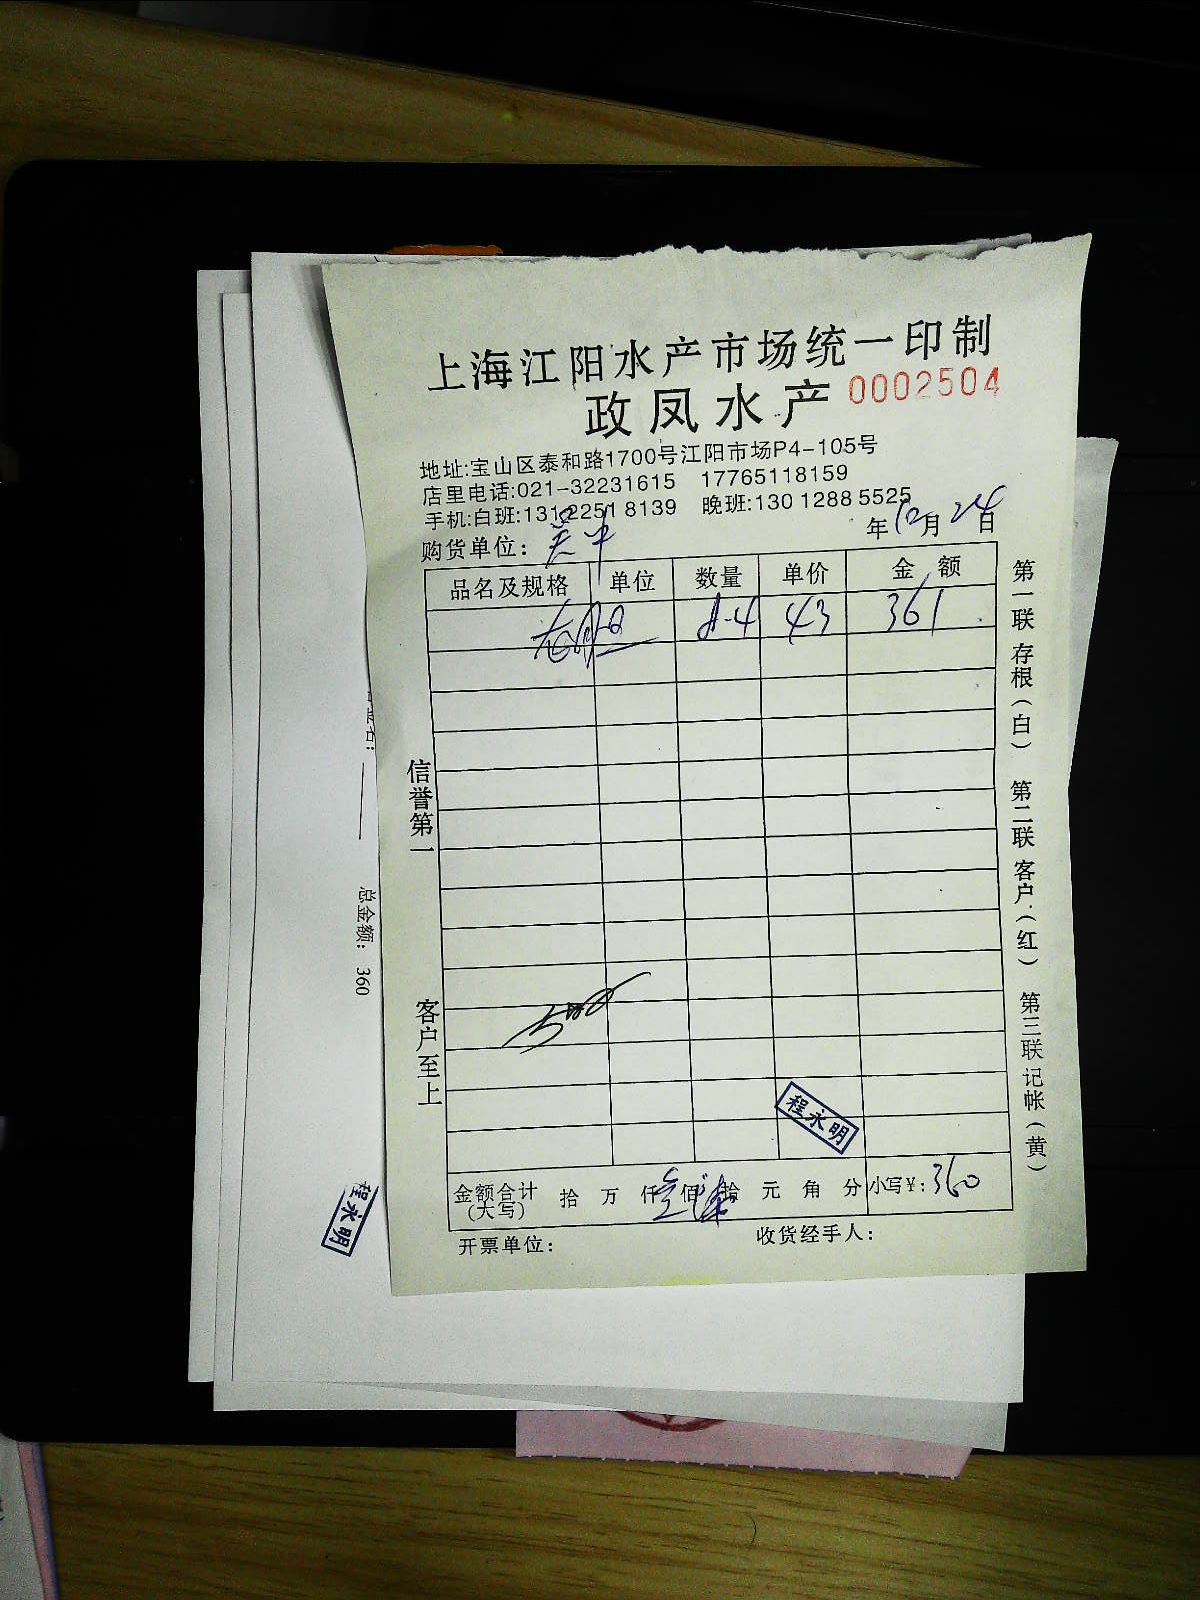 上海江阳水产市场统一印制
政凤水产 0002504
地址:宝山区泰和路1700号江阳市场P4-105号
店里电话:021-32231615 17765118159
手机:白班:131 2251 8139 晚班:130 1288 5525
年12月24日
购货单位:
品名及规格 单位 数量 单价 金额
43 361
信誉第一
客户至上
第一联 存根(白) 第二联 客户(红) 第三联 记帐(黄)
程永明
金额合计(大写) 拾 万 仟 佰 拾 元 角 分 小写¥:360
开票单位: 收货经手人:
总金额: 360
程永明